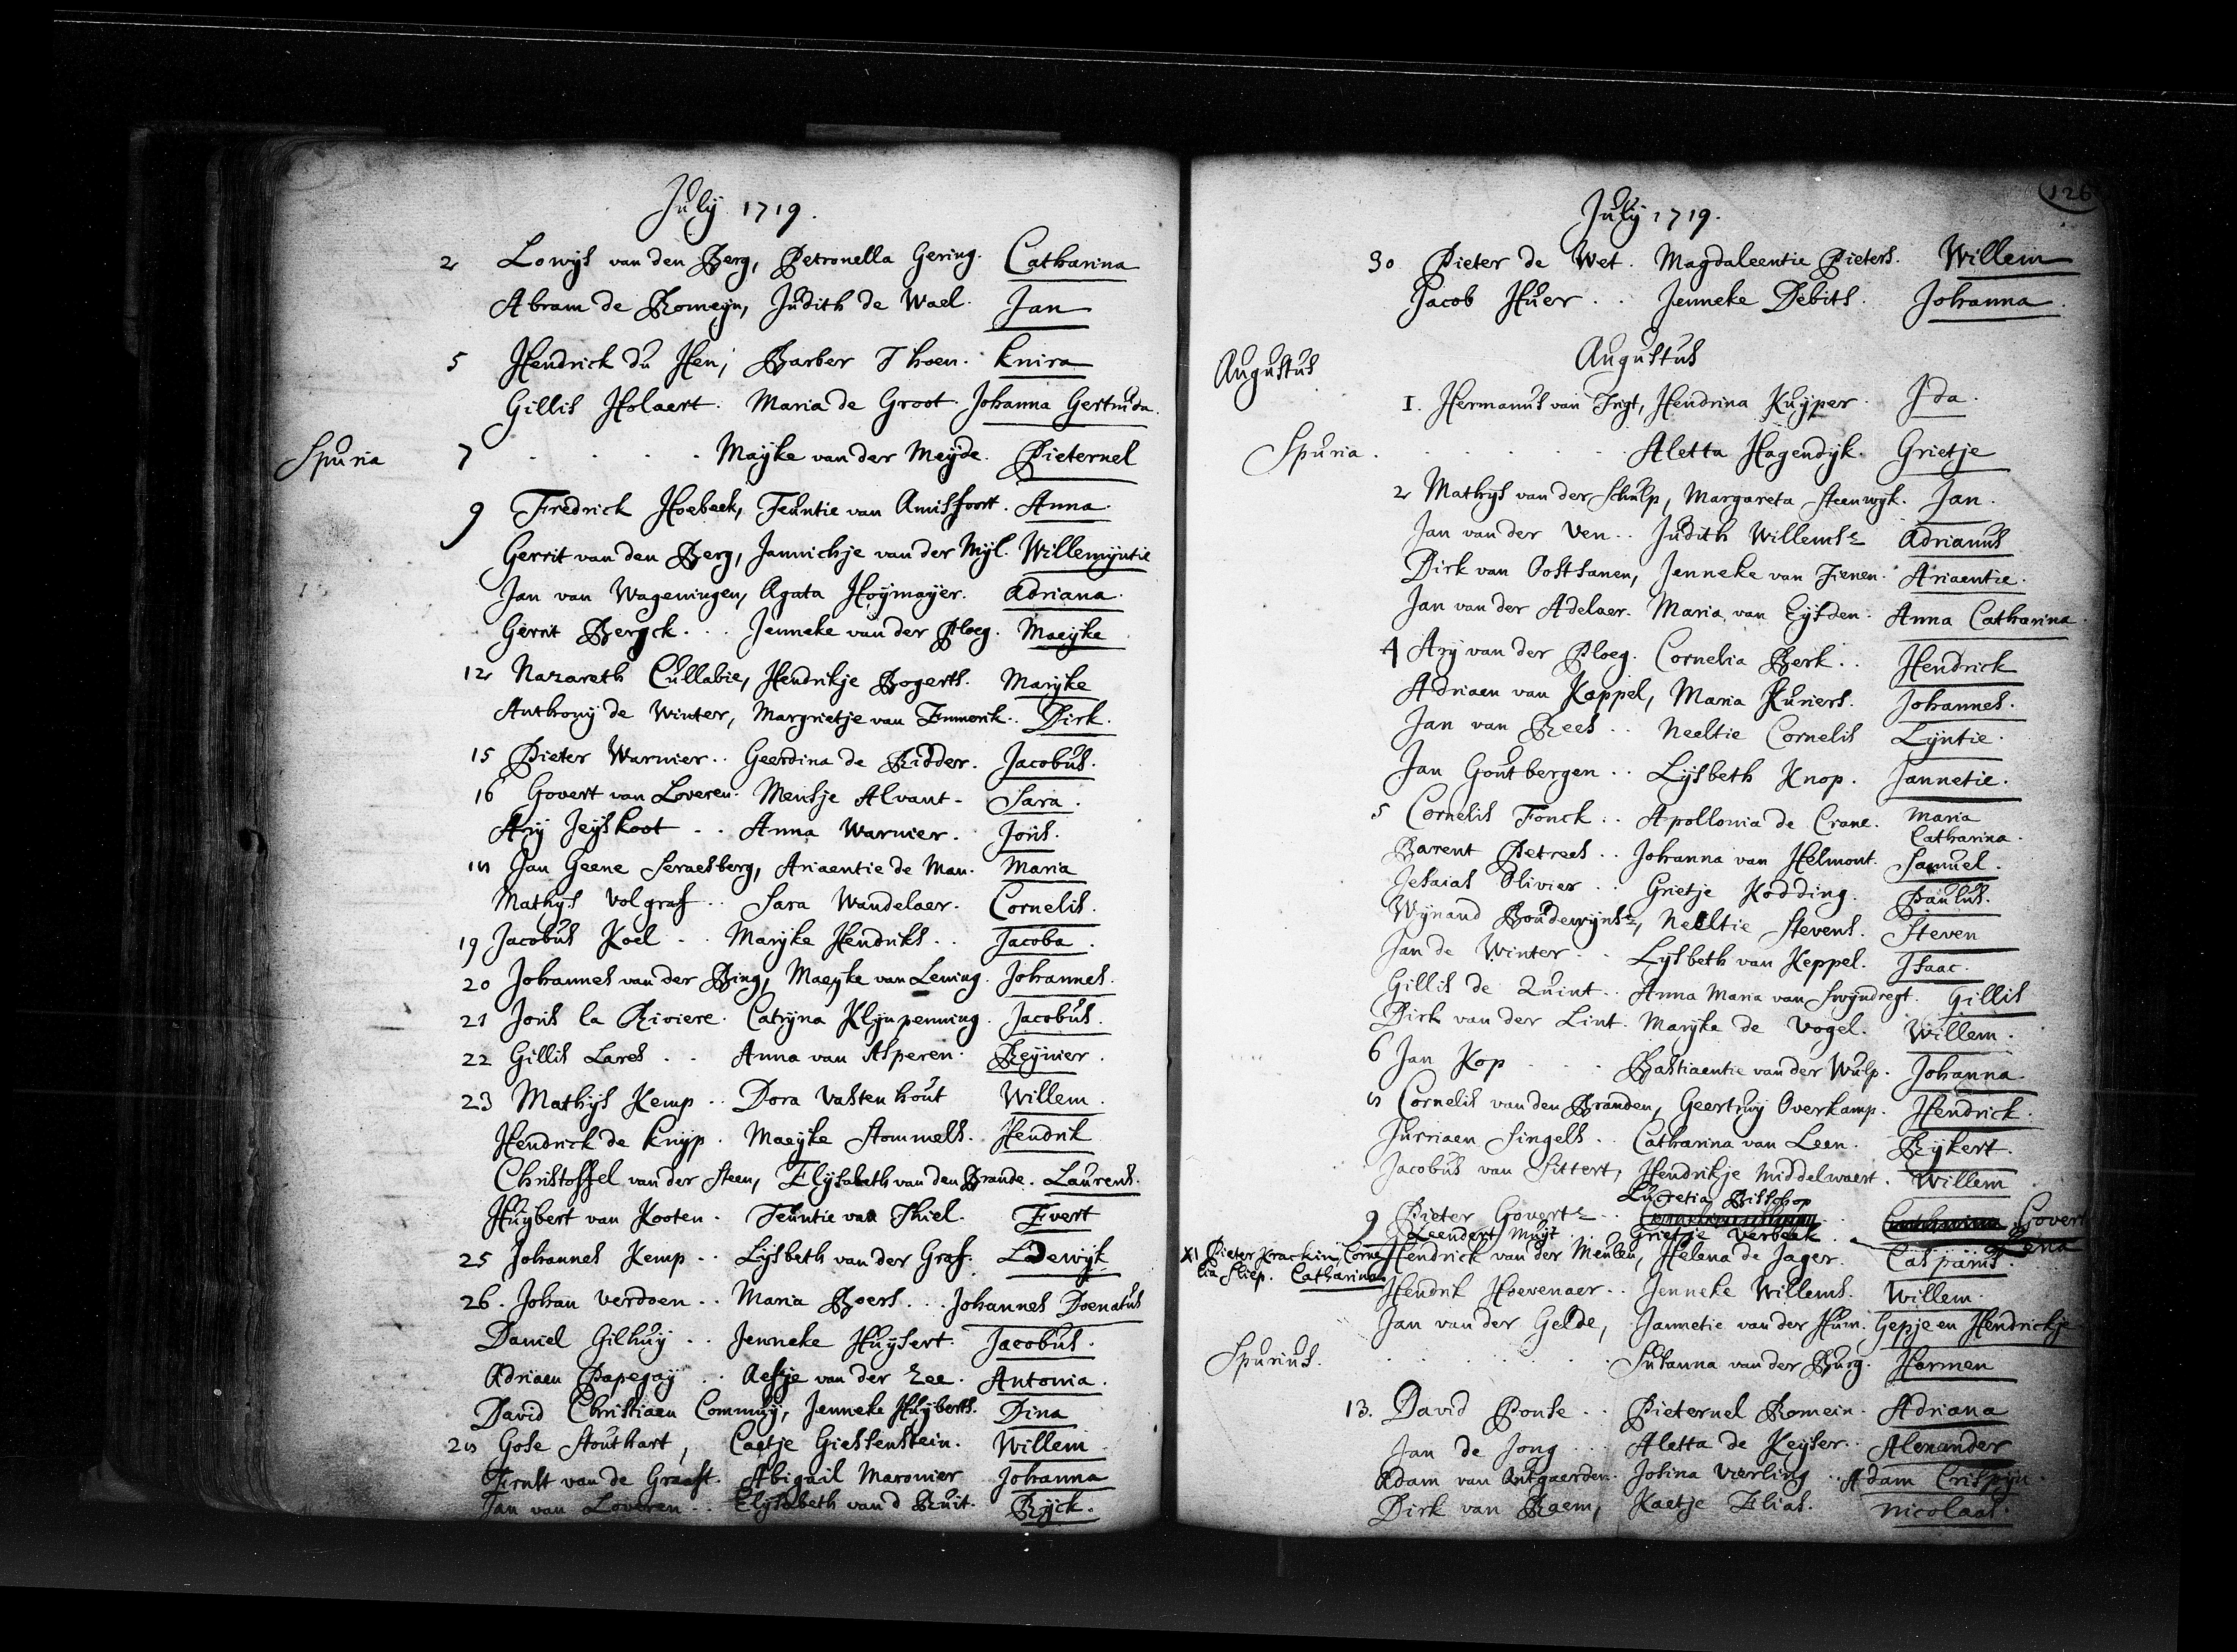 July 1719.
2 Lowijs van den Berg, Petronella Gering. Catharina
Abram de Romeijn, Judith de Wael. Jan
5 Hendrick du Hen, Barber Thoen. Knira
Gillis Holaert. Maria de Groot. Johanna Gertruda.
Spuria 7 . . . . Mayke van der Meyde. Pieternel
9 Fredrick Hoebeek, Teuntie van Amisfoort. Anna.
Gerrit van den Berg, Jannichje van der Mijl. Willemijntie
Jan van Wageningen, Agata Hoymayer. Adriana.
Gerrit Bergck. . . Jenneke van der Ploeg. Maeyke
12 Nazareth Cullabie, Hendrikje Bogerts. Maryke
Anthony de Winter, Margrietje van Emmerik. . Dirk.
15 Pieter Warnier. . Geerdina de Ridder. Jacobus.
16 Govert van Loveren. Mensje Alvant. Sara.
Ary Jeyskoot . . Anna Warnier. Joris.
18 Jan Geene Seraesberg, Ariaentie de Man. Maria
Mathys Volgraf. . Sara Wandelaer. Cornelis.
19 Jacobus Koel . . Maryke Hendriks. . Jacoba.
20 Johannes van der Bing, Maeyke van Lening. Johannes.
21 Joris la Riviere. Catryna Klynpenning. Jacobus.
22 Gillis Lares . . Anna van Asperen. Reynier.
23 Mathys Kemp . . Dora Vastenhout Willem.
Hendrick de Knyp. Maeyke Stommels. Hendrik
Christoffel van der Steen, Elysabeth van den Brande. Laurens.
Huybert van Kooten. Teuntie van Thiel. Evert
25 Johannes Kemp . . Lysbeth van der Graf. Lodewyk
26. Johan Verdoen. . Maria Boers. . . Johannes Doenatus
Daniel Gilhuy . . Jenneke Huysert. Jacobus.
Adriaen Papegay . . Aefje van der Zee. Antonia.
David Christiaen Commuy, Jenneke Huyberts. Dina
28 Gose Southart, Caetje Giessenstein. Willem
Ernst van de Graaft. Abigail Maronier Johanna
Jan van Loveren . . Elysabeth vand Bruit. Ryck.
126
July 1719.
30 Pieter de Wet. Magdaleentie Pieters. Willem
Jacob Huer . . Jenneke Debits. Johanna.
Augustus Augustus
1. Hermanus van Trigt, Hendrina Kuyper. Ida.
Spuria. . . . . Aletta Hagendyk. Grietje
2 Mathys van der Schulp, Margareta Steenwyk. Jan.
Jan van der Ven. . Judith Willemse Adrianus
Dirk van Oostsanen, Jenneke van Tienen. Ariaentie.
Jan van der Adelaer. Maria van Eysden. Anna Catharina.
4 Ary van der Ploeg. Cornelia Berk. . Hendrick
Adriaen van Kappel, Maria Kuriers. Johannes.
Jan van Rees . . Neeltie Cornelis Lyntie.
Jan Goutbergen . . Lysbeth Knop. Jannetie.
5 Cornelis Fonck. . Apollonia de Crane. Maria Catharina.
Barent Petrees . . Johanna van Helmont. Samuel.
Jesaias Olivier . . Grietje Kodding. Paulus.
Wynand Boudewynse, Neeltie Stevens. Steven
Jan de Winter. . Lysbeth van Keppel. Isaac.
Gillis de Quint. . Anna Maria van Swyndregt. Gillis
Dirk van der Lint. Maryke de Vogel. Willem.
6 Jan Kop . . . Bastiaentie van der Wulp. Johanna.
8 Cornelis van den Branden, Geertruy Overkamp. Hendrick.
Jurriaen Singels . . Catharina van Leen. Rykert.
Jacobus van Sittert, Hendrikje Middelwaert. Willem
Lucretia Bisschop
9 Pieter Goverts . . Govert
Leendert Muyt . . Grietje Verbeek. Lena
XI Pieter Krackin, Corne Hendrick van der Meulen, Helena de Jager. Casparus.
lia Sliep. Catharina
Hendrik Hoevenaer. . Jenneke Willems. Willem.
Jan van der Gelde, Jannetie van der Hum. Gepje en Hendrickje
Spurius. . . . . Susanna van der Burg. Harmen
13. David Ponse . . Pieternel Romein. Adriana
Jan de Jong . . . Aletta de Keyser. . Alexander
Adam van Antgaerden. Josina Vierling . . Adam Crispyn.
Dirk van Raem, Kaetje Elias. Nicolaas.